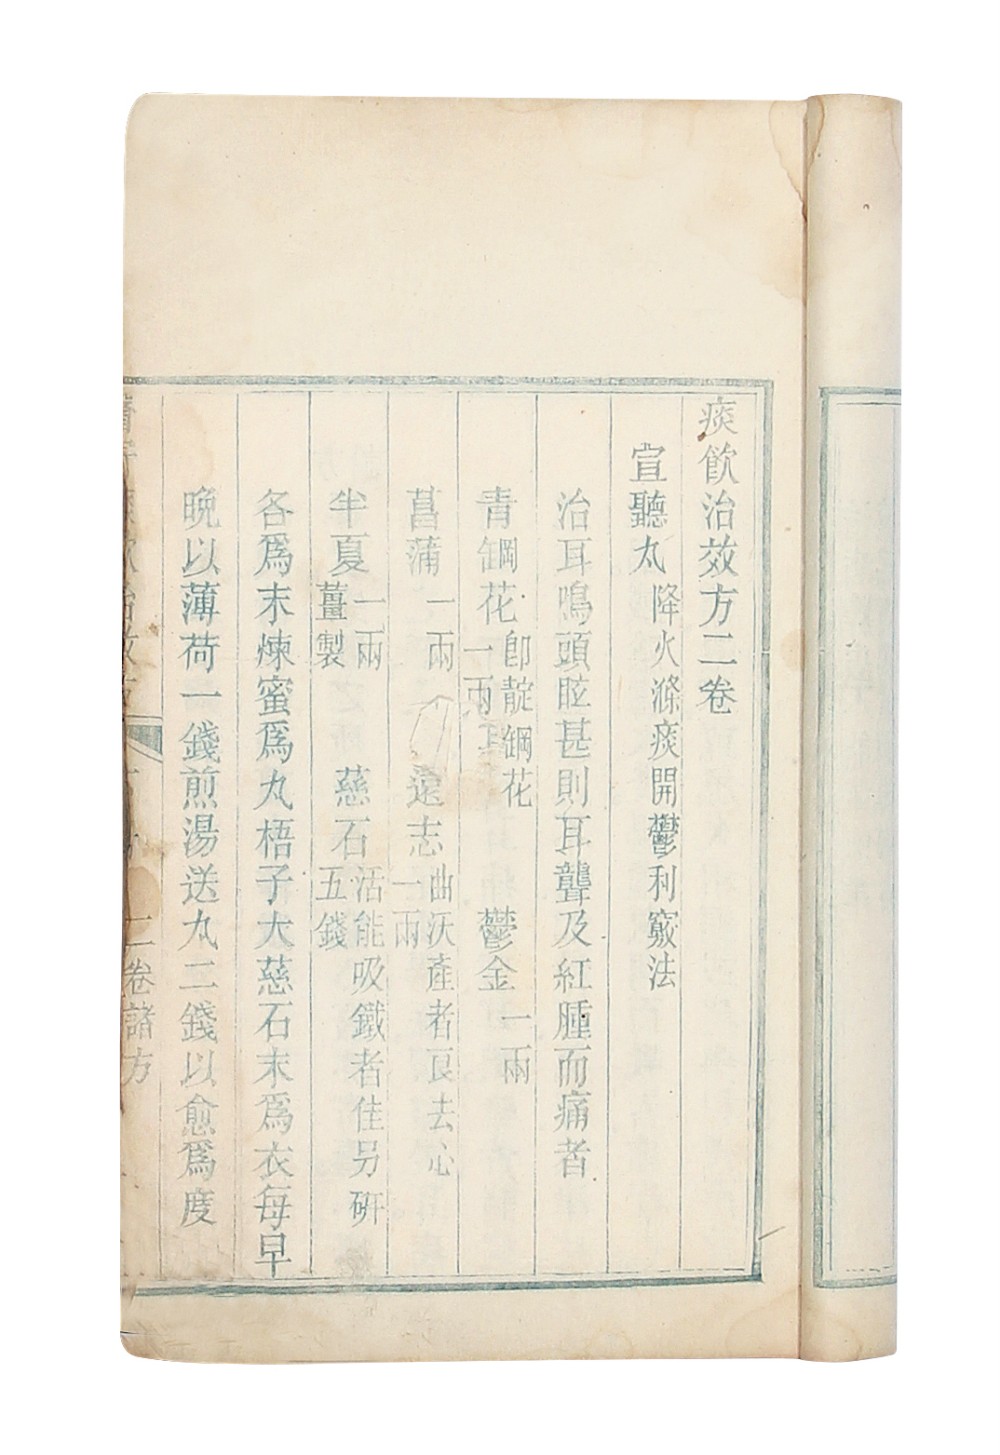 痰飲治效方二卷
宣聽丸 降火滌痰開鬱利竅法
治耳鳴頭眩甚則耳聾及紅腫而痛者
青鋼花 卽靛鋼花一兩 鬱金 一兩
菖蒲 一兩 遠志 曲沃產者良去心一兩
半夏 一兩薑製 慈石 活能吸鐵者佳另硏五錢
各爲末煉蜜爲丸梧子大慈石末爲衣每早
晚以薄荷一錢煎湯送丸二錢以愈爲度
二卷諸方